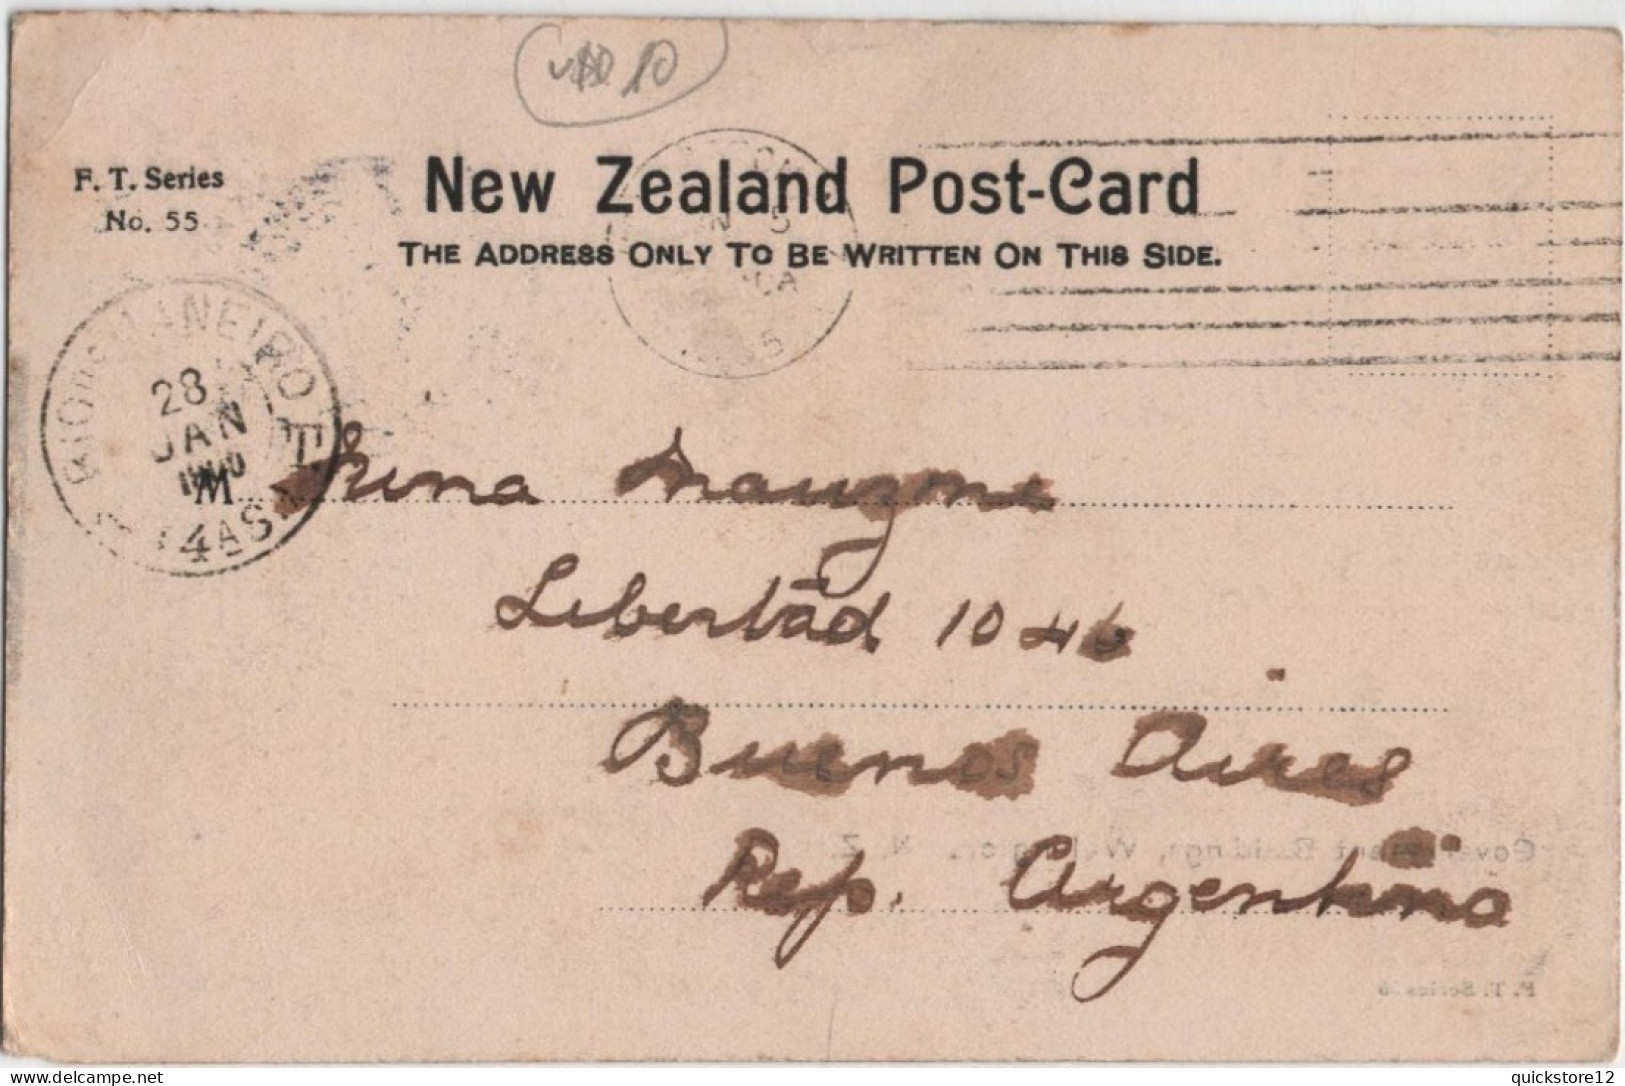 USD 10
F. T. Series
No. 55
New Zealand Post-Card
THE ADDRESS ONLY TO BE WRITTEN ON THIS SIDE.
N 5
RIO DE JANEIRO
28
JAN
4 AS
M
Libertad 1046
Buenos Aires
Rep. Argentina
Government Buildings, Wellington. N. Z.
F. T. Series
delcampe.net
quickstore12